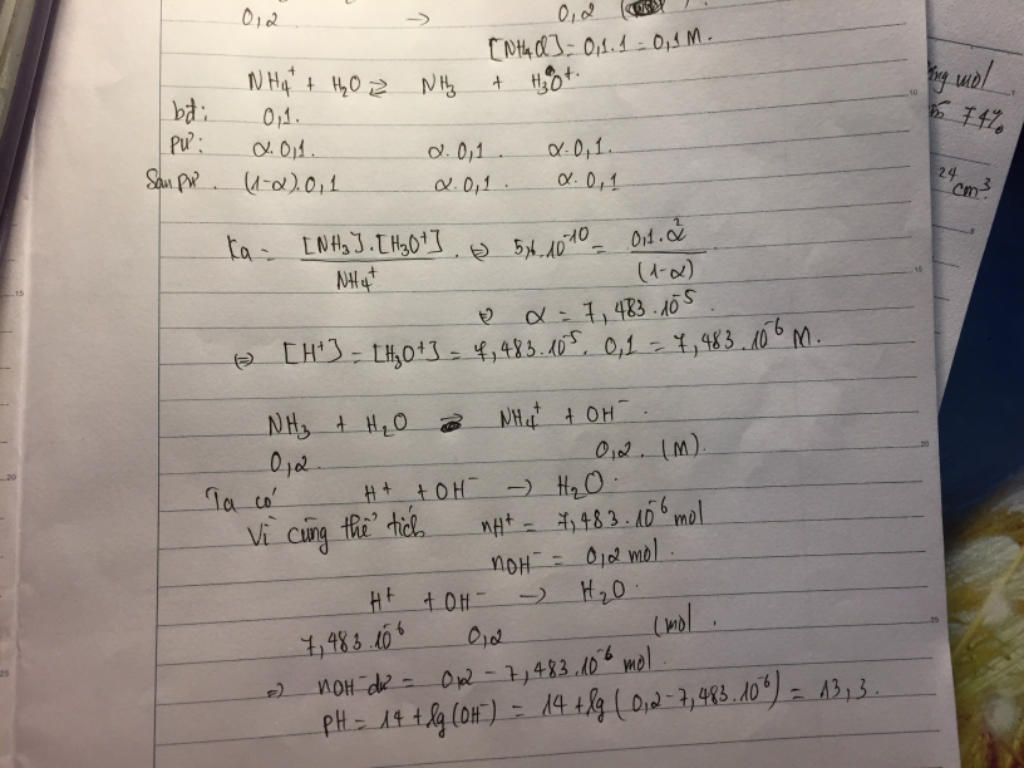 0,2 → 0,2
[NH4Cl] = 0,1.1 = 0,1 M.
NH4⁺ + H2O ⇌ NH3 + H3O⁺.
bđ: 0,1.
pư: α.0,1. α.0,1. α.0,1.
Sau pư. (1-α).0,1 α.0,1. α.0,1
Ka = [NH3].[H3O⁺] / NH4⁺ . ⇔ 5,6.10⁻¹⁰ = 0,1.α² / (1-α)
⇔ α = 7,483.10⁻⁵
⇔ [H⁺] = [H3O⁺] = 7,483.10⁻⁵. 0,1 = 7,483.10⁻⁶ M.
NH3 + H2O ⇌ NH4⁺ + OH⁻.
0,2. 0,2. (M).
Ta có H⁺ + OH⁻ → H2O.
Vì cùng thể tích nH⁺ = 7,483.10⁻⁶ mol
nOH⁻ = 0,2 mol.
H⁺ + OH⁻ → H2O.
7,483.10⁻⁶ 0,2 (mol.
⇒ nOH⁻ dư = 0,2 - 7,483.10⁻⁶ mol.
pH = 14 + lg(OH⁻) = 14 + lg(0,2-7,483.10⁻⁶) = 13,3.
mol
74%
24
cm³